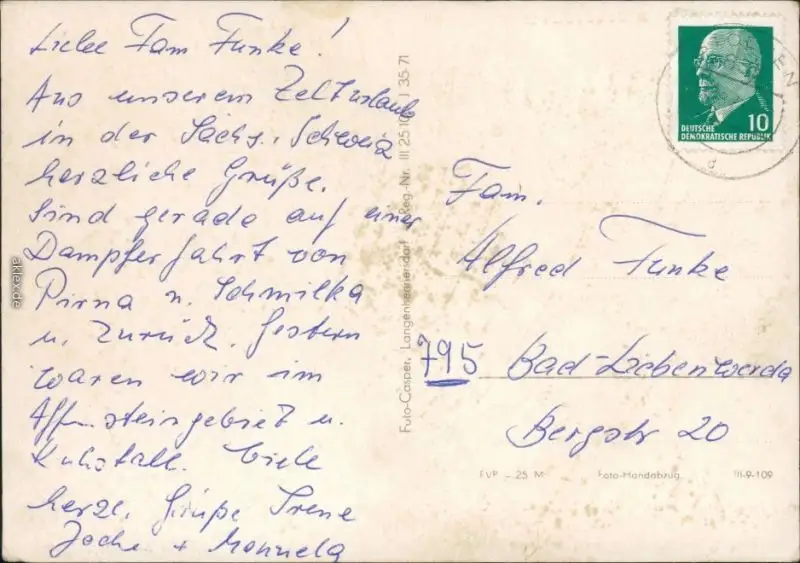 Liebe Fam Funke!
Aus unserem Zelturlaub
in der Sächs. Schweiz
herzliche Grüße.
Sind gerade auf einer
Dampferfahrt von
Pirna n. Schmilka
u. zurück. Gestern
waren wir im
Affensteingebiet u.
Kuhstall. Viele
herzl. Grüße Irene
Joche + Manuela
Foto-Casper, Langenhennersdorf Reg.-Nr. III 25 10 J 35 71
DEUTSCHE
DEMOKRATISCHE REPUBLIK 10
Fam.
Alfred Funke
795 Bad-Liebenwerda
Bergstr 20
EVP -.25 M Foto-Handabzug III-9-109
akpool.de